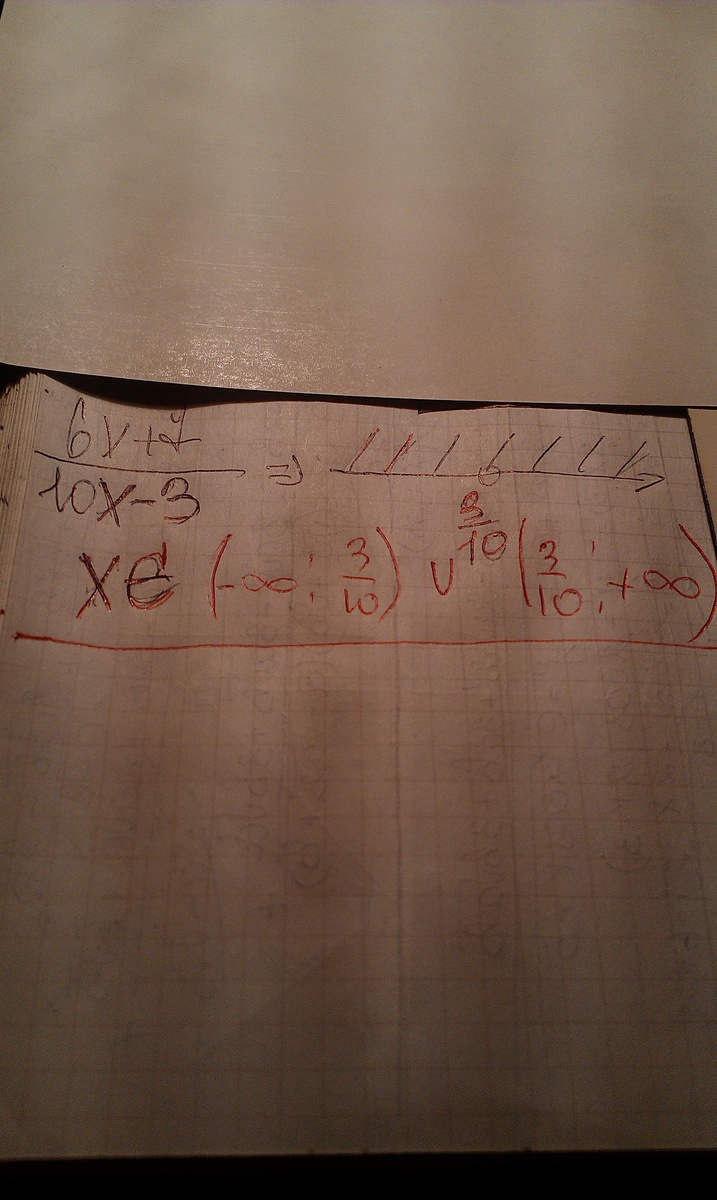 6x+7
10x-3 ⇒
3/10
x∈ (-∞; 3/10) ∪ (3/10; +∞)